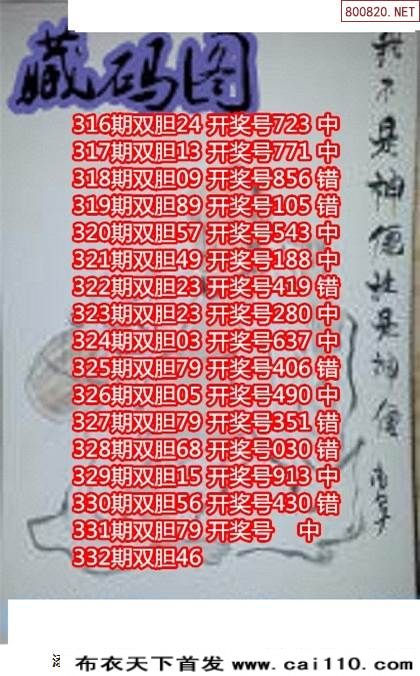 800820.NET
藏码图
316期双胆24 开奖号723 中
317期双胆13 开奖号771 中
318期双胆09 开奖号856 错
319期双胆89 开奖号105 错
320期双胆57 开奖号543 中
321期双胆49 开奖号188 中
322期双胆23 开奖号419 错
323期双胆23 开奖号280 中
324期双胆03 开奖号637 中
325期双胆79 开奖号406 错
326期双胆05 开奖号490 中
327期双胆79 开奖号351 错
328期双胆68 开奖号030 错
329期双胆15 开奖号913 中
330期双胆56 开奖号430 错
331期双胆79 开奖号 中
332期双胆46
我不是神仙胜是神仙
布衣天下首发 www.cai110.com